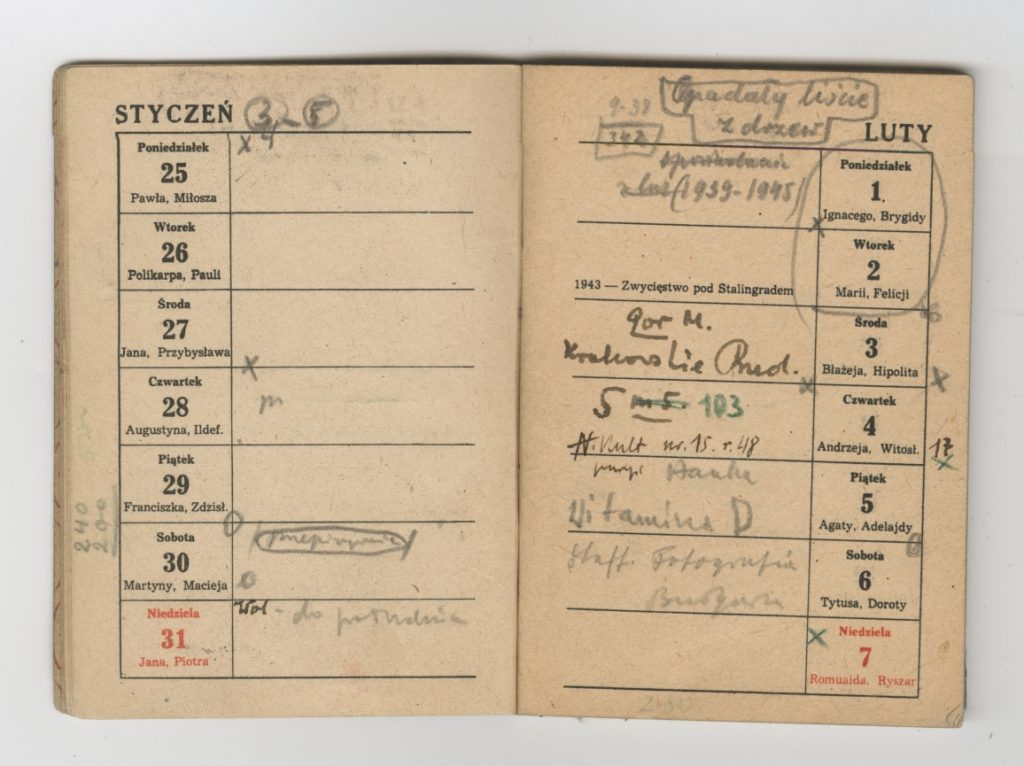 STYCZEŃ 3 - 5
x 4
Poniedziałek
25
Pawła, Miłosza
Wtorek
26
Polikarpa, Pauli
Środa
27
Jana, Przybysława
x
Czwartek
28
Augustyna, Ildef.
Piątek
29
Franciszka, Zdzisł.
240
200
Sobota
30
Martyny, Macieja
Niedziela
31
Jana, Piotra
Wol - do południa
Opadały liście
z drzew
9-38
342
LUTY
(1939-1945)
Poniedziałek
1
Ignacego, Brygidy
x
Wtorek
2
Marii, Felicji
1943 — Zwycięstwo pod Stalingradem
gor M.
Krakowskie Przed.
Środa
3
Błażeja, Hipolita
x x
5 m 5. 103
Czwartek
4
Andrzeja, Witosł.
N. Kult nr. 15. r. 48
17
x
Hanka
Witamina D
Piątek
5
Agaty, Adelajdy
Staff. Fotografia
Sobota
6
Tytusa, Doroty
x
Niedziela
7
Romualda. Ryszar